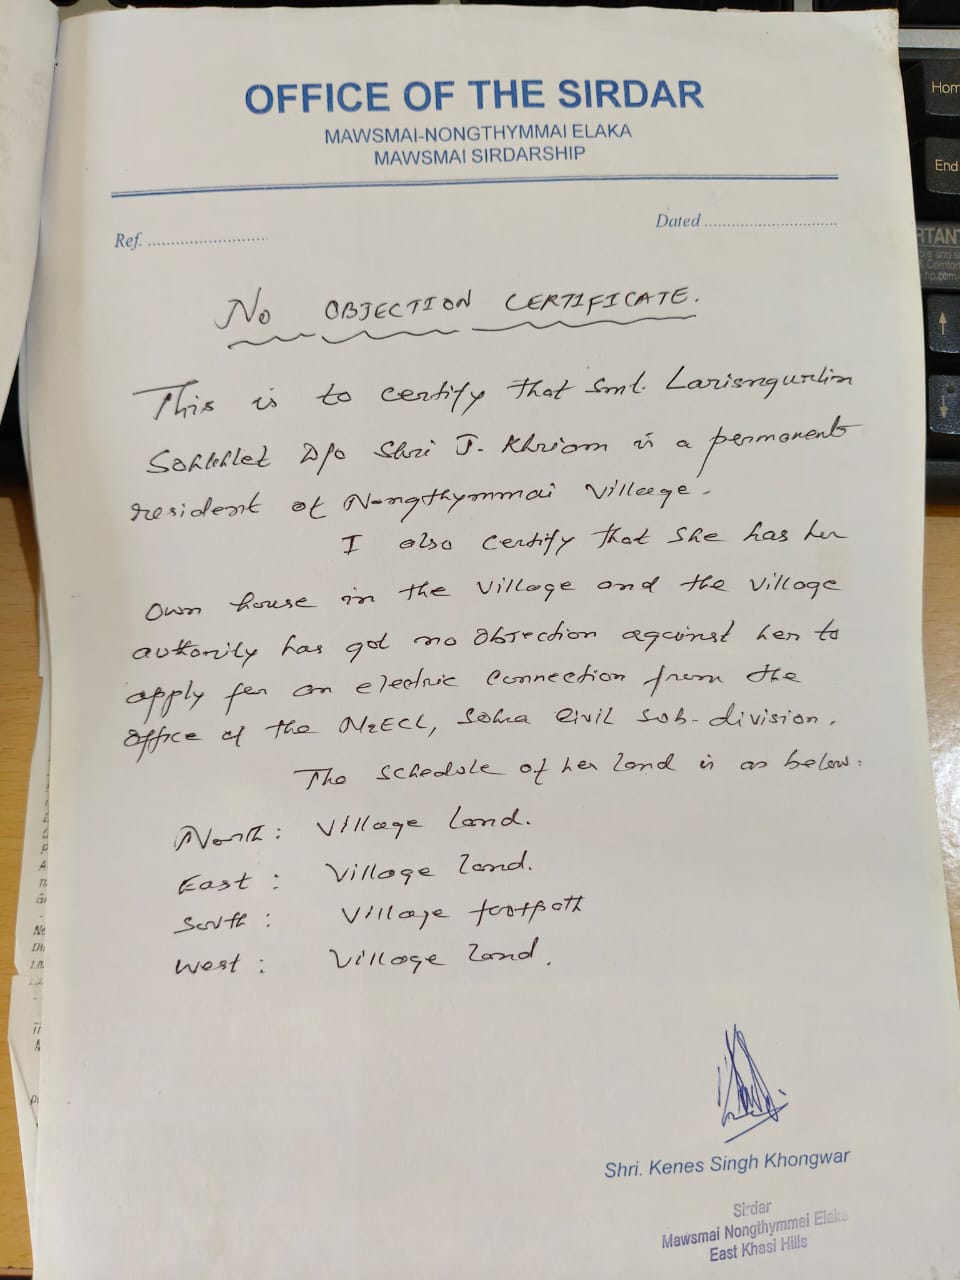 OFFICE OF THE SIRDAR
MAWSMAI-NONGTHYMMAI ELAKA
MAWSMAI SIRDARSHIP
Dated ..............................
Ref. ...........................
NO OBJECTION CERTIFICATE.
This is to certify that Smt. Larisngurlin
Sohkhlet D/o Shri J. Khriam is a permanent
resident of Nongthymmai Village.
I also certify that she has her
own house in the village and the village
authority has got no objection against her to
apply for an electric connection from the
office of the MeECL, Sohra Civil sub-division.
The schedule of her land is as below:
North: Village land.
East: Village land.
South: Village footpath
West: Village land.
Shri. Kenes Singh Khongwar
Sirdar
Mawsmai Nongthymmai Elaka
East Khasi Hills
Home
End